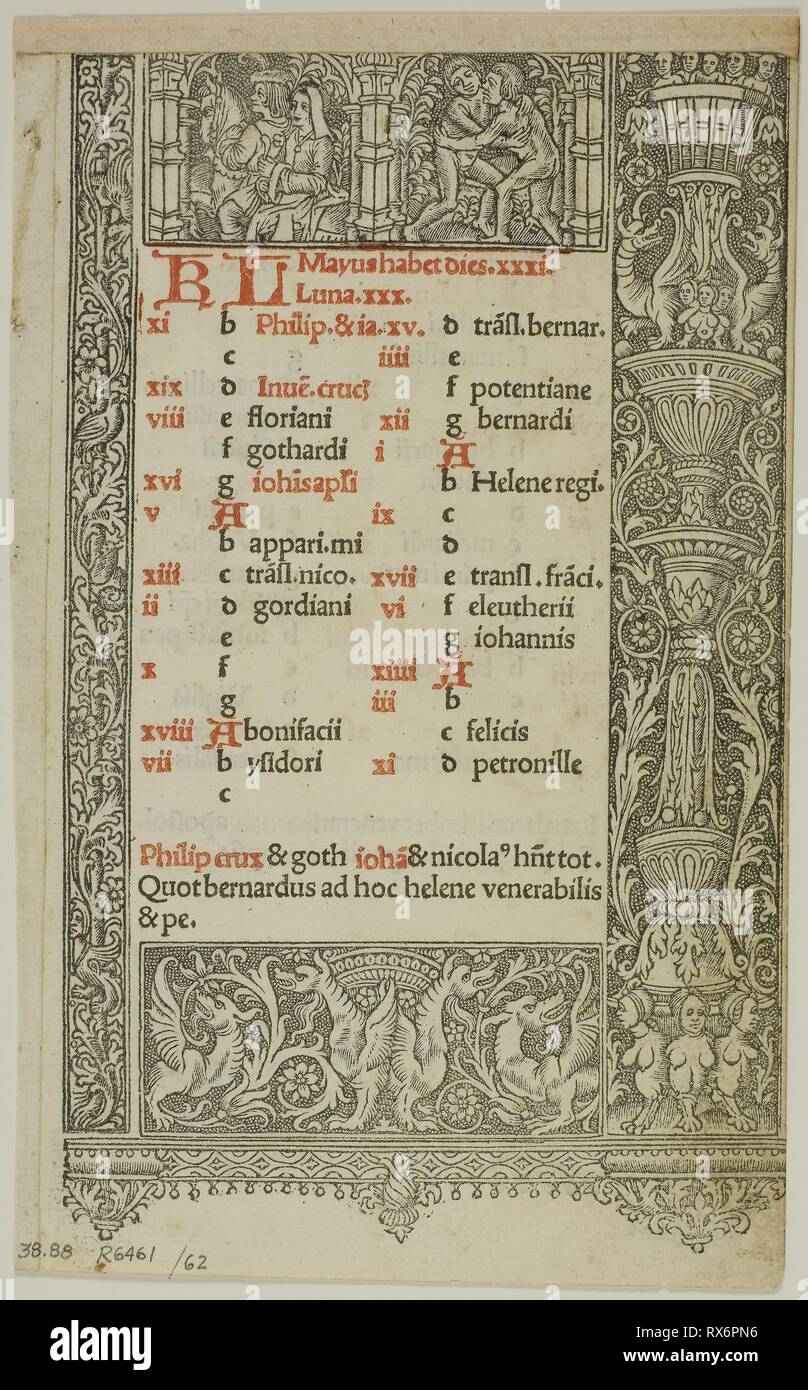 KL Mayus habet dies.xxxi.
Luna.xxx.
xi b Philip.&ia.xv. d trãsl.bernar.
c iiii e
xix d Inuẽ.cruc f potentiane
viii e floriani xii g bernardi
f gothardi i A
xvi g iohis apli b Helene regi.
v A ix c
b appari.mi d
xiii c trãsl.nico. xvii e transl.frãci.
ii d gordiani vi f eleutherii
e g iohannis
x f xiiii A
g iii b
xviii A bonifacii c felicis
vii b ysidori xi d petronille
c
Philip crux &goth iohã&nicolaꝰ hñt tot.
Quot bernardus ad hoc helene venerabilis
&pe.
38.88 R6461 /62
alamy
Image ID: RX6PN6
www.alamy.com